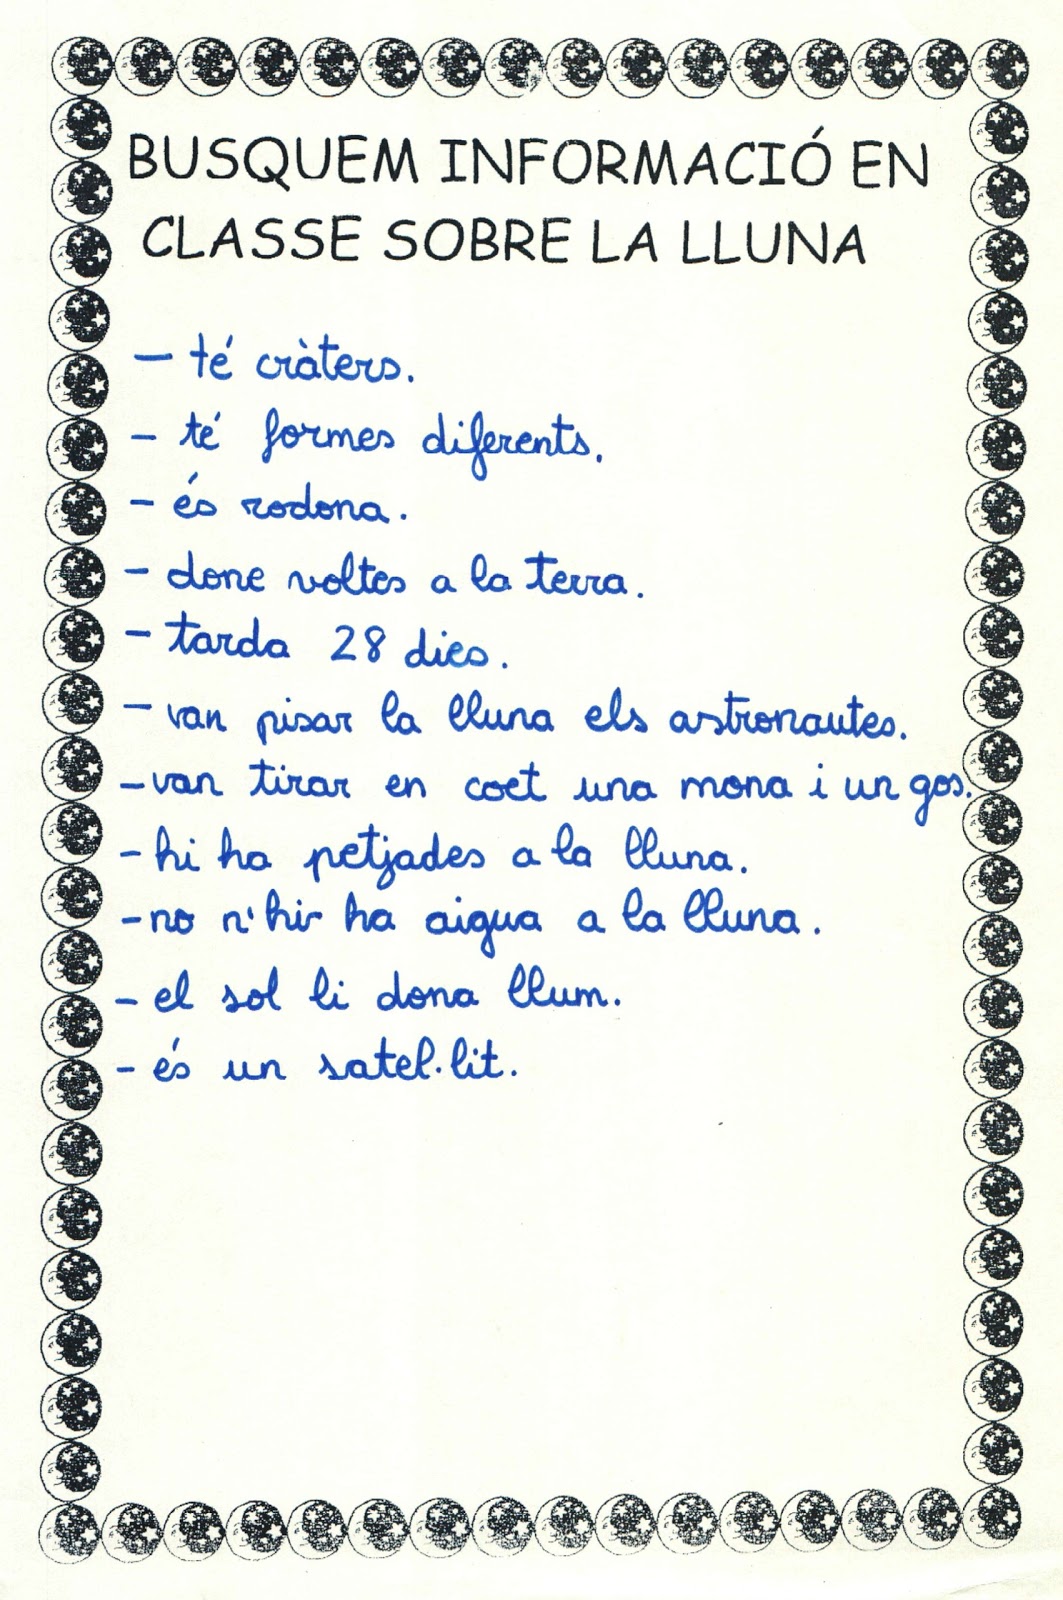 BUSQUEM INFORMACIÓ EN
CLASSE SOBRE LA LLUNA
- té cràters.
- té formes diferents.
- és rodona.
- done voltes a la terra.
- tarda 28 dies.
- van pisar la lluna els astronautes.
- van tirar en coet una mona i un gos.
- hi ha petjades a la lluna.
- no n'hi ha aigua a la lluna.
- el sol li dona llum.
- és un satel·lit.